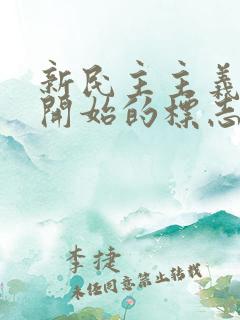 新民主主義
開始的標志
李捷
未经同意禁止转载